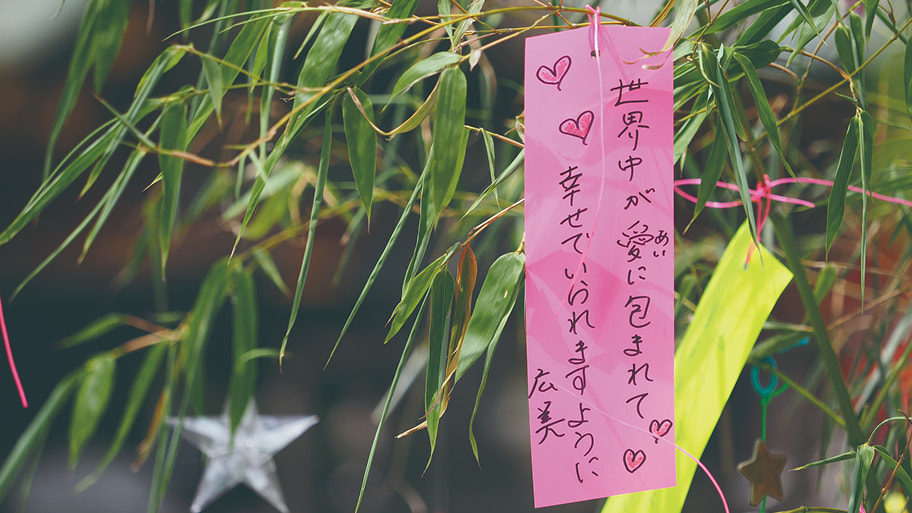 世界中が愛に包まれて
あい
幸せでいられますように
広美